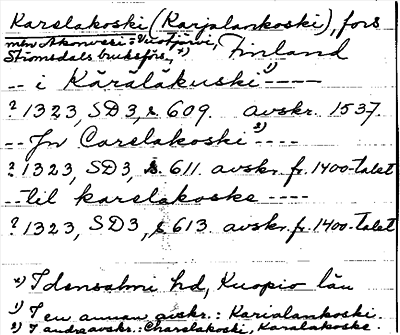 Karelakoski (Karjalankoski), fors
mln Akonvesi - Vuotjärvi, Finland
Strömsdals bruksförs., *)
-- i Käräläkuski 1) ----
? 1323, SD3, s. 609. avskr. 1537.
-- Jn Carelakoski 2) ----
? 1323, SD3, s. 611. avskr. fr. 1400-talet
-- til karelakoske ----
? 1323, SD3, s. 613. avskr. fr. 1400-talet
*) Idensalmi hd, Kuopio län
1) I en annan avskr.: Karialankoski.
2) I andra avskr.: Charelakoski, Karalakoske.